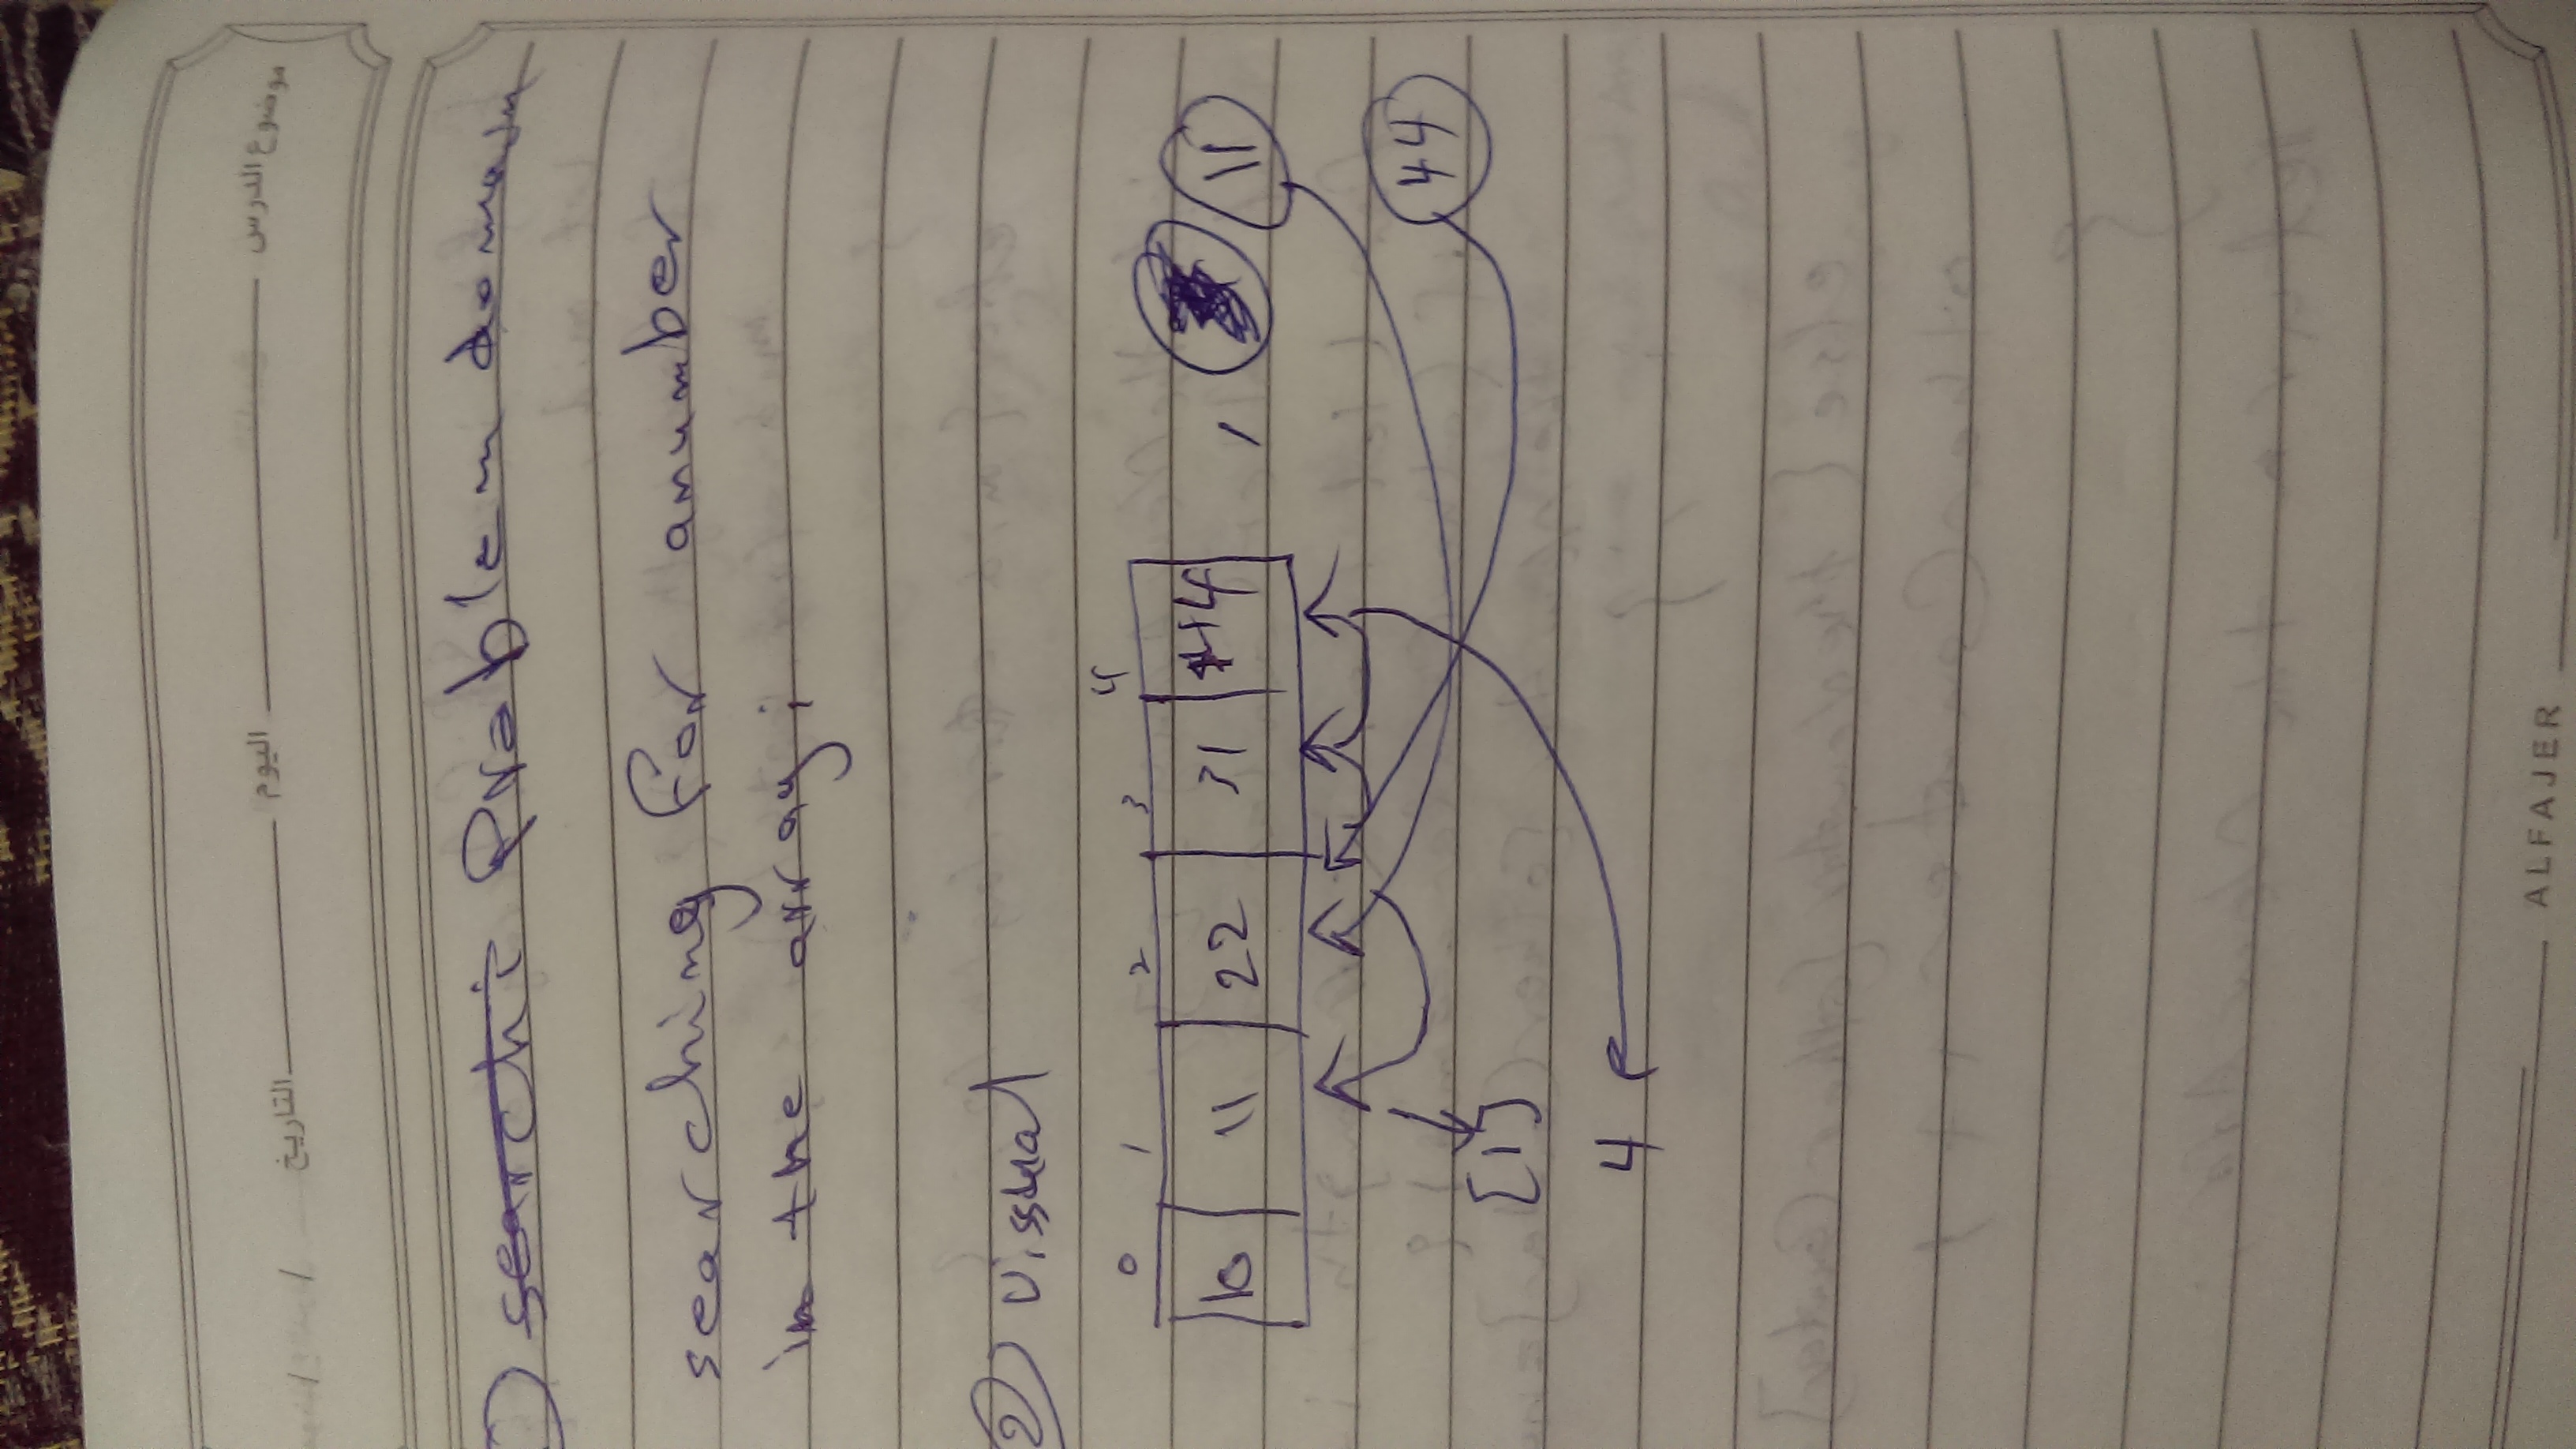 التاريخ اليوم موضوع الدرس
Problem domain
searching for anumber
in the array;
② Vissual
0 1 2 3 4
10 11 22 31 44 , 11
44
[1]
4
ALFAJER